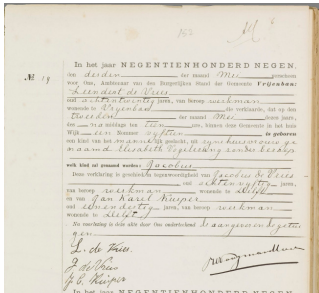 № 19
In het jaar NEGENTIENHONDERD NEGEN,
den derden der maand Mei verscheen
voor Ons, Ambtenaar van den Burgerlijken Stand der Gemeente Vrijenban:
Leendert de Vries
oud achtentwintig jaren, van beroep werkman
wonende te Vrijenban die verklaarde, dat op
tweeden der maand Mei dezes jaars,
des na middags ten tien ure, binnen deze Gemeente in het huis
Wijk een Nummer vijftien is geboren
een kind van het mannelijk geslacht, uit zijne huisvrouw ge
naamd Elisabeth zonder beroep
welk kind zal genaamd worden: Jacobus
Deze verklaring is geschied in tegenwoordigheid van Jacobus de Vries
oud achtenvijftig jaren,
van beroep werkman wonende te Delft
en van Jan Karel Kuiper
oud eenendertig jaren, van beroep werkman
wonende te Delft
Na voorlezing is deze akte door Ons onderteekend
L. de Vries
J de Vries
J. C. Kuiper
In het jaar NEGENTIENHONDERD NEGEN